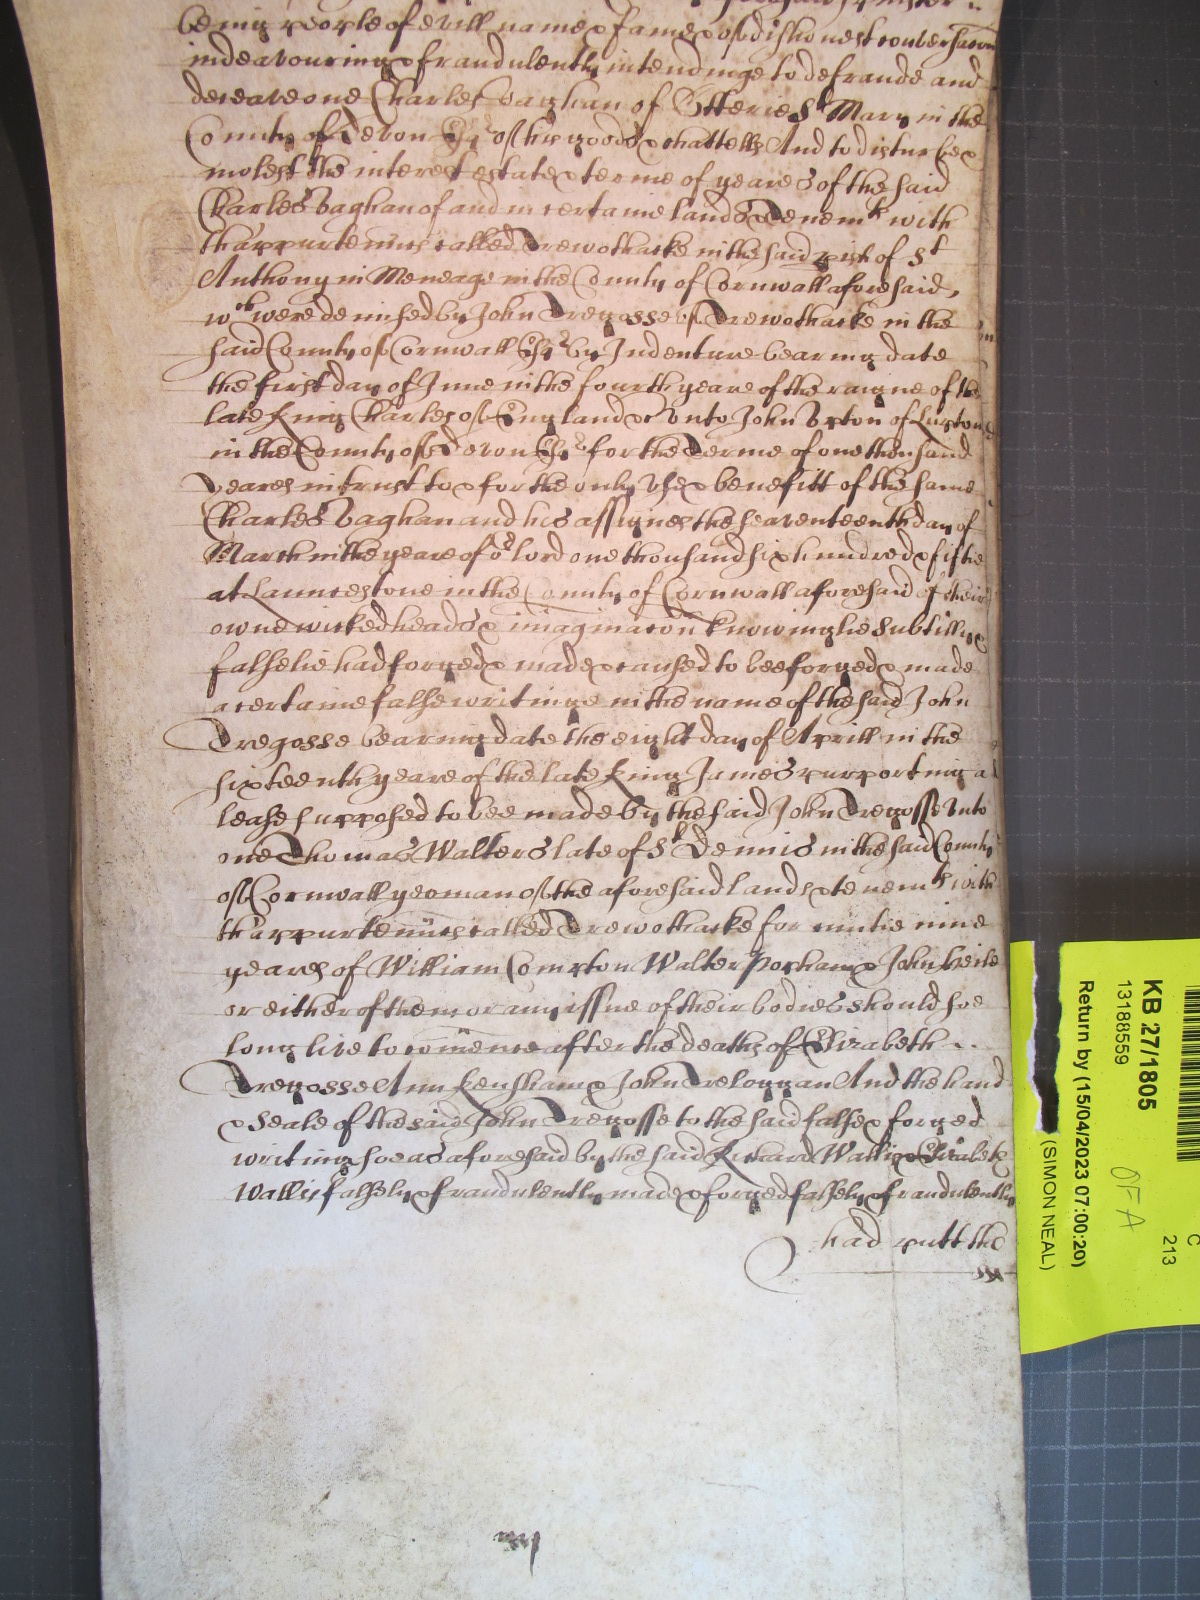 being people of evill name & fame & of dishonest conversacon
indeavouring & fraudulently intendinge to defraude and
deceave one Charles Vaghan of Otterie St Mary in the
County of Devon Esqr of his goods & chattells And to disturbe &
molest the interest estate & terme of yeares of the said
Charles Vaghan of and in certaine lands & Tenemts with
thappurtennces called Trewothacke in the said pish of St
Anthony in Meneage in the County of Cornwall aforesaid,
wch were demised by John Tregosse of Trewothacke in the
said County of Cornwall Esqr by Indenture bearing date
the first day of June in the fourth yeare of the raigne of the
late King Charles of England &c unto John Upton of Lupton
in the County of Devon Esqr for the Terme of one thousand
Yeares in trust to & for the only use & benefitt of the same
Charles Vaghan and his assignes the seaventeenth day of
March in the yeare of or lord one thousand six hundred & fiftie
at Launcestone in the County of Cornwall aforesaid of their
owne wicked heads & imaginacon knowinglie subtillie &
falselie had forged & made & caused to bee forged & made
a certaine false writinge in the name of the said John
Tregosse bearing date the eight day of Aprill in the
sixteenth yeare of the late King James purporting a
lease supposed to bee made by the said John Tregosse unto
one Thomas Walters late of St Dennis in the said County
of Cornwall yeoman of the aforesaid lands & tenemts with
thappurtennces called Trewothacke for nintie nine
yeares of William Compton Walter & John
or either of them or any issue of their bodies should soe
long live to comence after the deaths of Elizabeth ..
Tregosse Ann Kensham & John Treloggan And the hand
& seale of the said John Tregosse to the said false & forged
writing soe as aforesaid by the said Richard Wallis & Elizabeth
Wallis falsely & fraudulently made & forged falsely & fraudulently
had putt the
KB 27/1805
13188559
Return by (15/04/2023 07:00:20)
(SIMON NEAL)
OFA
C
213